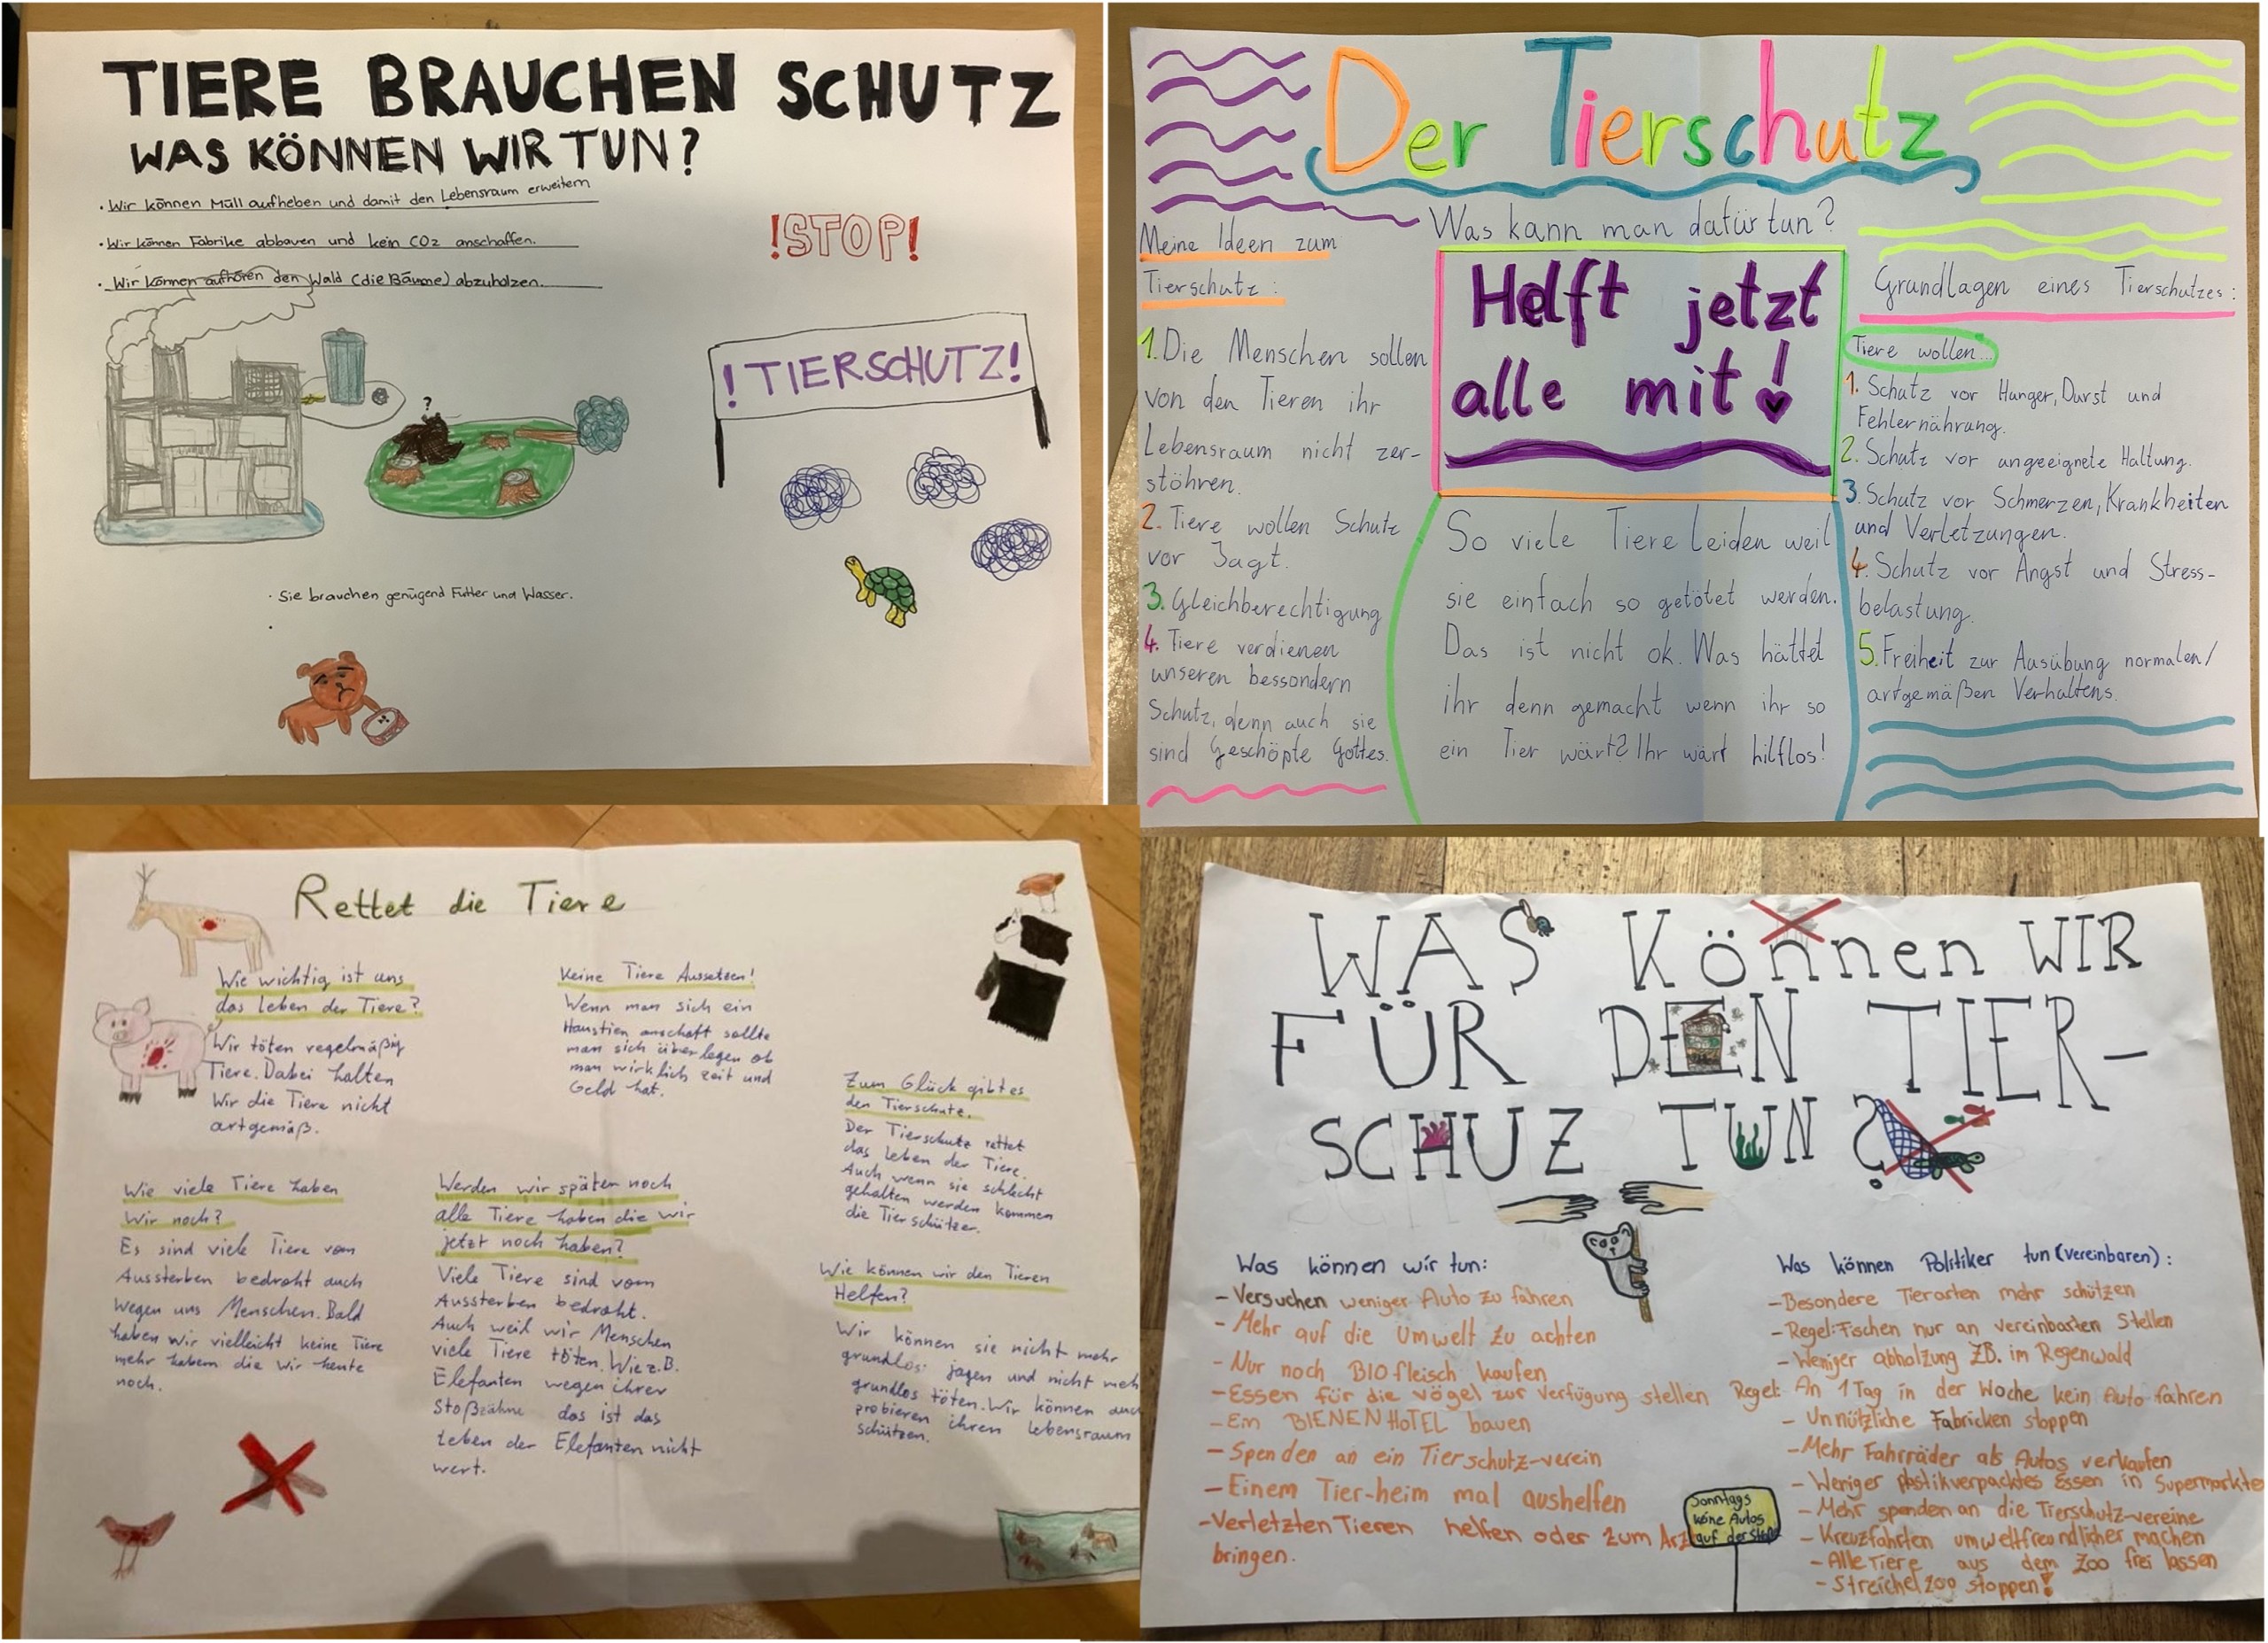 TIERE BRAUCHEN SCHUTZ
WAS KÖNNEN WIR TUN?
· Wir können Müll aufheben und damit den Lebensraum erweitern
· Wir können Fabrike abbauen und kein CO2 anschaffen.
· Wir können aufhören den Wald (die Bäume) abzuholzen.
!STOP!
!TIERSCHUTZ!
?
· Sie brauchen genügend Futter und Wasser.
Der Tierschutz
Was kann man dafür tun?
Meine Ideen zum
Tierschutz:
1. Die Menschen sollen
von den Tieren ihr
Lebensraum nicht zer-
stöhren.
2. Tiere wollen Schutz
vor Jagt.
3. Gleichberechtigung
4. Tiere verdienen
unseren bessondern
Schutz, denn auch sie
sind Geschöpfe Gottes.
Helft jetzt
alle mit!
So viele Tiere Leiden weil
sie einfach so getötet werden.
Das ist nicht ok. Was hättet
ihr denn gemacht wenn ihr so
ein Tier wärt? Ihr wärt hilflos!
Grundlagen eines Tierschutzes:
Tiere wollen...
1. Schutz vor Hunger, Durst und
Fehlernährung.
2. Schutz vor angeeignete Haltung.
3. Schutz vor Schmerzen, Krankheiten
und Verletzungen.
4. Schutz vor Angst und Stress-
belastung.
5. Freiheit zur Ausübung normalen/
artgemäßen Verhaltens.
Rettet die Tiere
Wie wichtig ist uns
das Leben der Tiere?
Wir töten regelmäßig
Tiere. Dabei halten
Wir die Tiere nicht
artgemäß.
Keine Tiere Aussetzen!
Wenn man sich ein
Haustien anschaft sollte
man sich überlegen ob
man wirklich zeit und
Geld hat.
Zum Glück gibt es
den Tierschutz.
Der Tierschutz rettet
das Leben der Tiere.
Auch wenn sie schlecht
gehalten werden kommen
die Tierschützer.
Wie viele Tiere haben
Wir noch?
Es sind viele Tiere vom
Aussterben bedroht auch
Wegen uns Menschen. Bald
haben Wir vielleicht keine Tiere
mehr haben die Wir heute
noch.
Werden wir später noch
alle Tiere haben die wir
jetzt noch haben?
Viele Tiere sind vom
Aussterben bedroht.
Auch weil wir Menschen
viele Tiere töten. Wie z.B.
Elefanten wegen ihrer
Stoßzähne das ist das
Leben der Elefanten nicht
wert.
Wie können wir den Tieren
Helfen?
Wir können sie nicht mehr
grundlos jagen und nicht meh
grundlos töten. Wir können auc
probieren ihren Lebensraum
schützen.
WAS Können WIR
FÜR DEN TIER-
SCHUZ TUN?
Was können wir tun:
- Versuchen weniger Auto zu fahren
- Mehr auf die Umwelt zu achten
- Nur noch BIO fleisch kaufen
- Essen für die vögel zur Verfügung stellen
- Ein BIENEN HOTEL bauen
- Spenden an ein Tierschutz-verein
- Einem Tier-heim mal aushelfen
- Verletzten Tieren helfen oder zum Arz
bringen.
Sonntags
keine Autos
auf der Straße
Was können Politiker tun (vereinbaren):
- Besondere Tierarten mehr schützen
- Regel: Fischen nur an vereinbarten Stellen
- Weniger abholzung ZB. im Regenwald
Regel: An 1 Tag in der Woche kein Auto fahren
- Unnützliche Fabricken stoppen
- Mehr Fahrräder als Autos verkaufen
- Weniger plastikverpacktes Essen in Supermarkte
- Mehr spenden an die Tierschutz-vereine
- Kreuzfahrten umweltfreundlicher machen
- Alle Tiere aus dem Zoo frei lassen
- Streichel zoo stoppen!